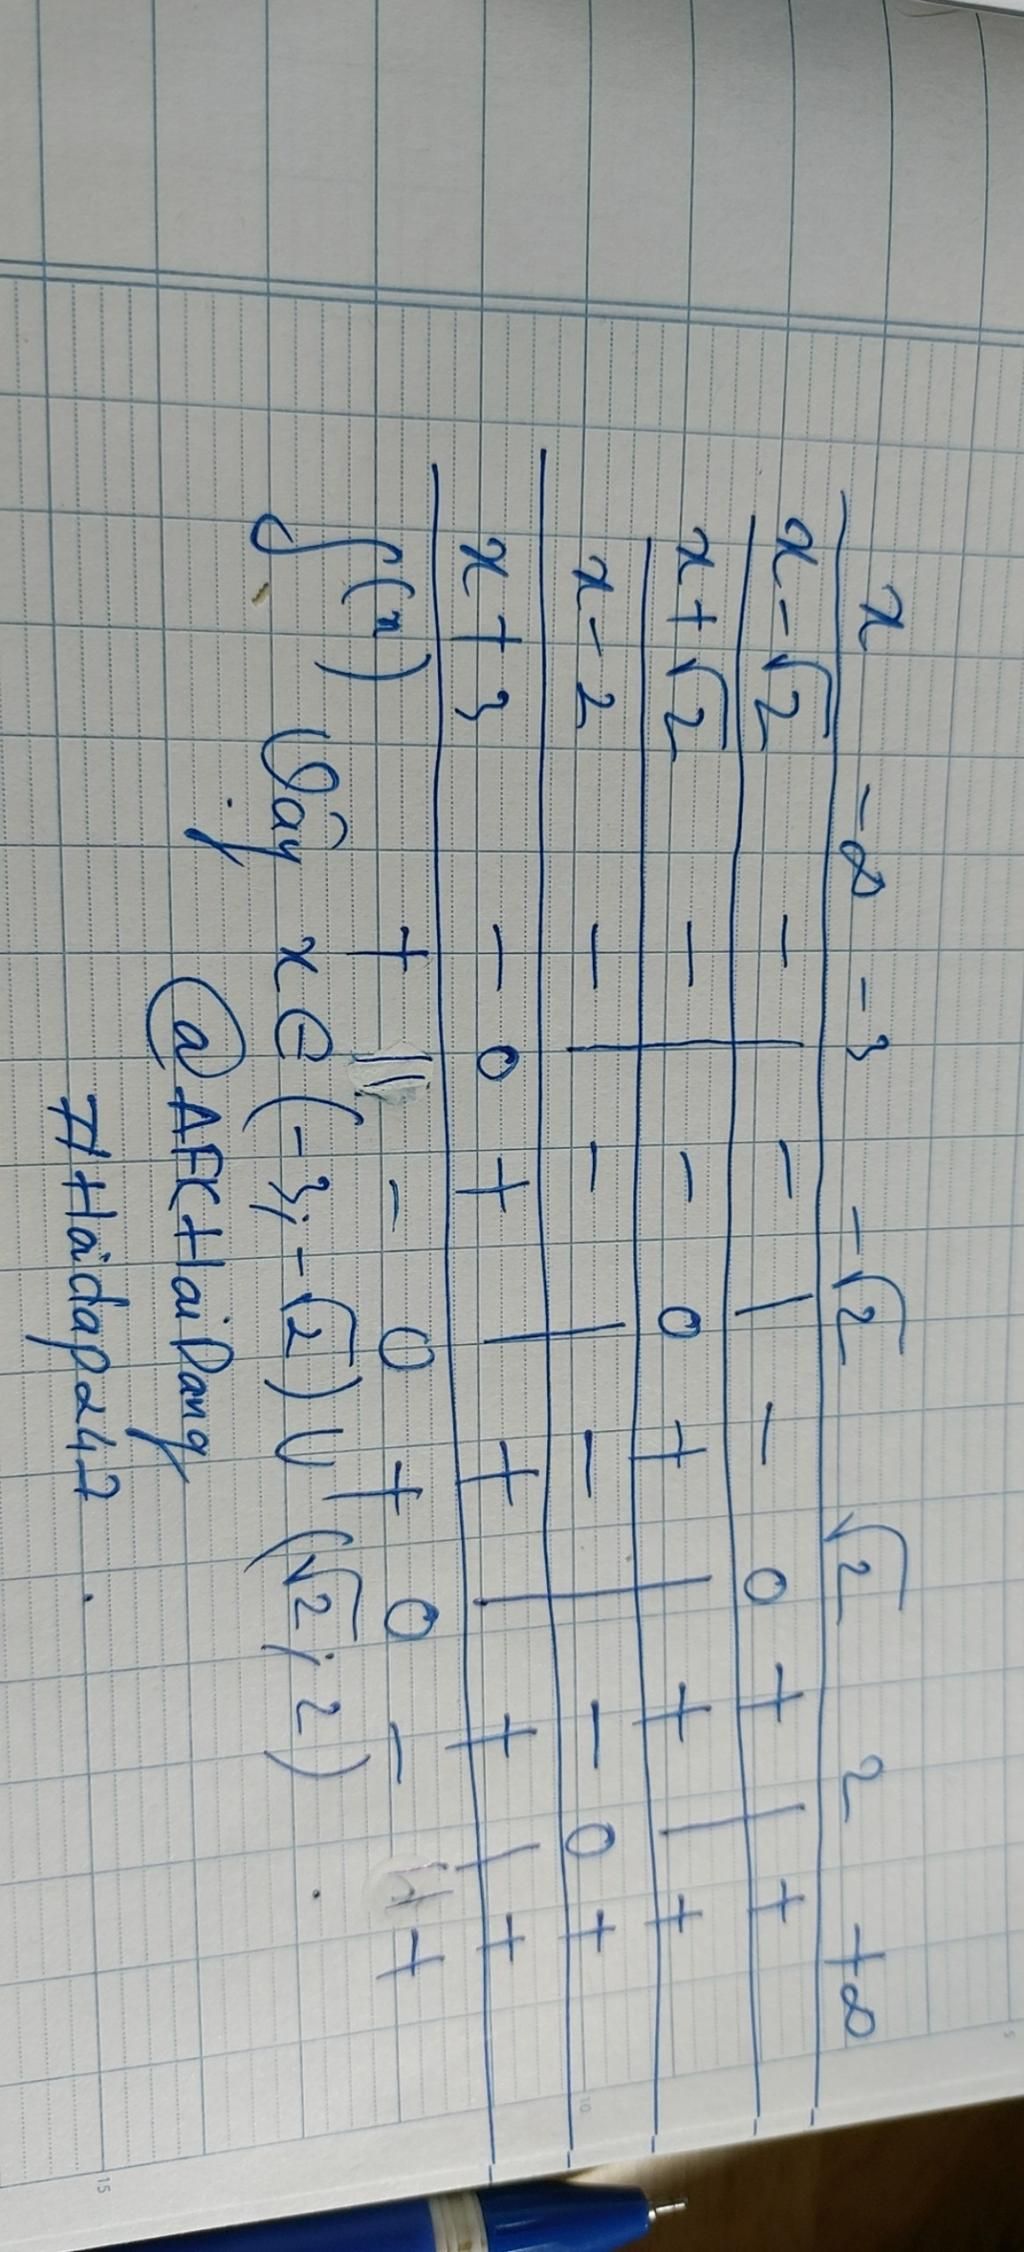 x -∞ -3 -√2 √2 2 +∞
x-√2 - | - | - 0 + | +
x+√2 - | - 0 + | + | +
x-2 - | - | - | - 0 +
x+3 - 0 + | + | + | +
f(x) + || - 0 + 0 - || +
Vậy x ∈ (-3; -√2) ∪ (√2; 2)
@AFKHaiDang
#Hoidap247